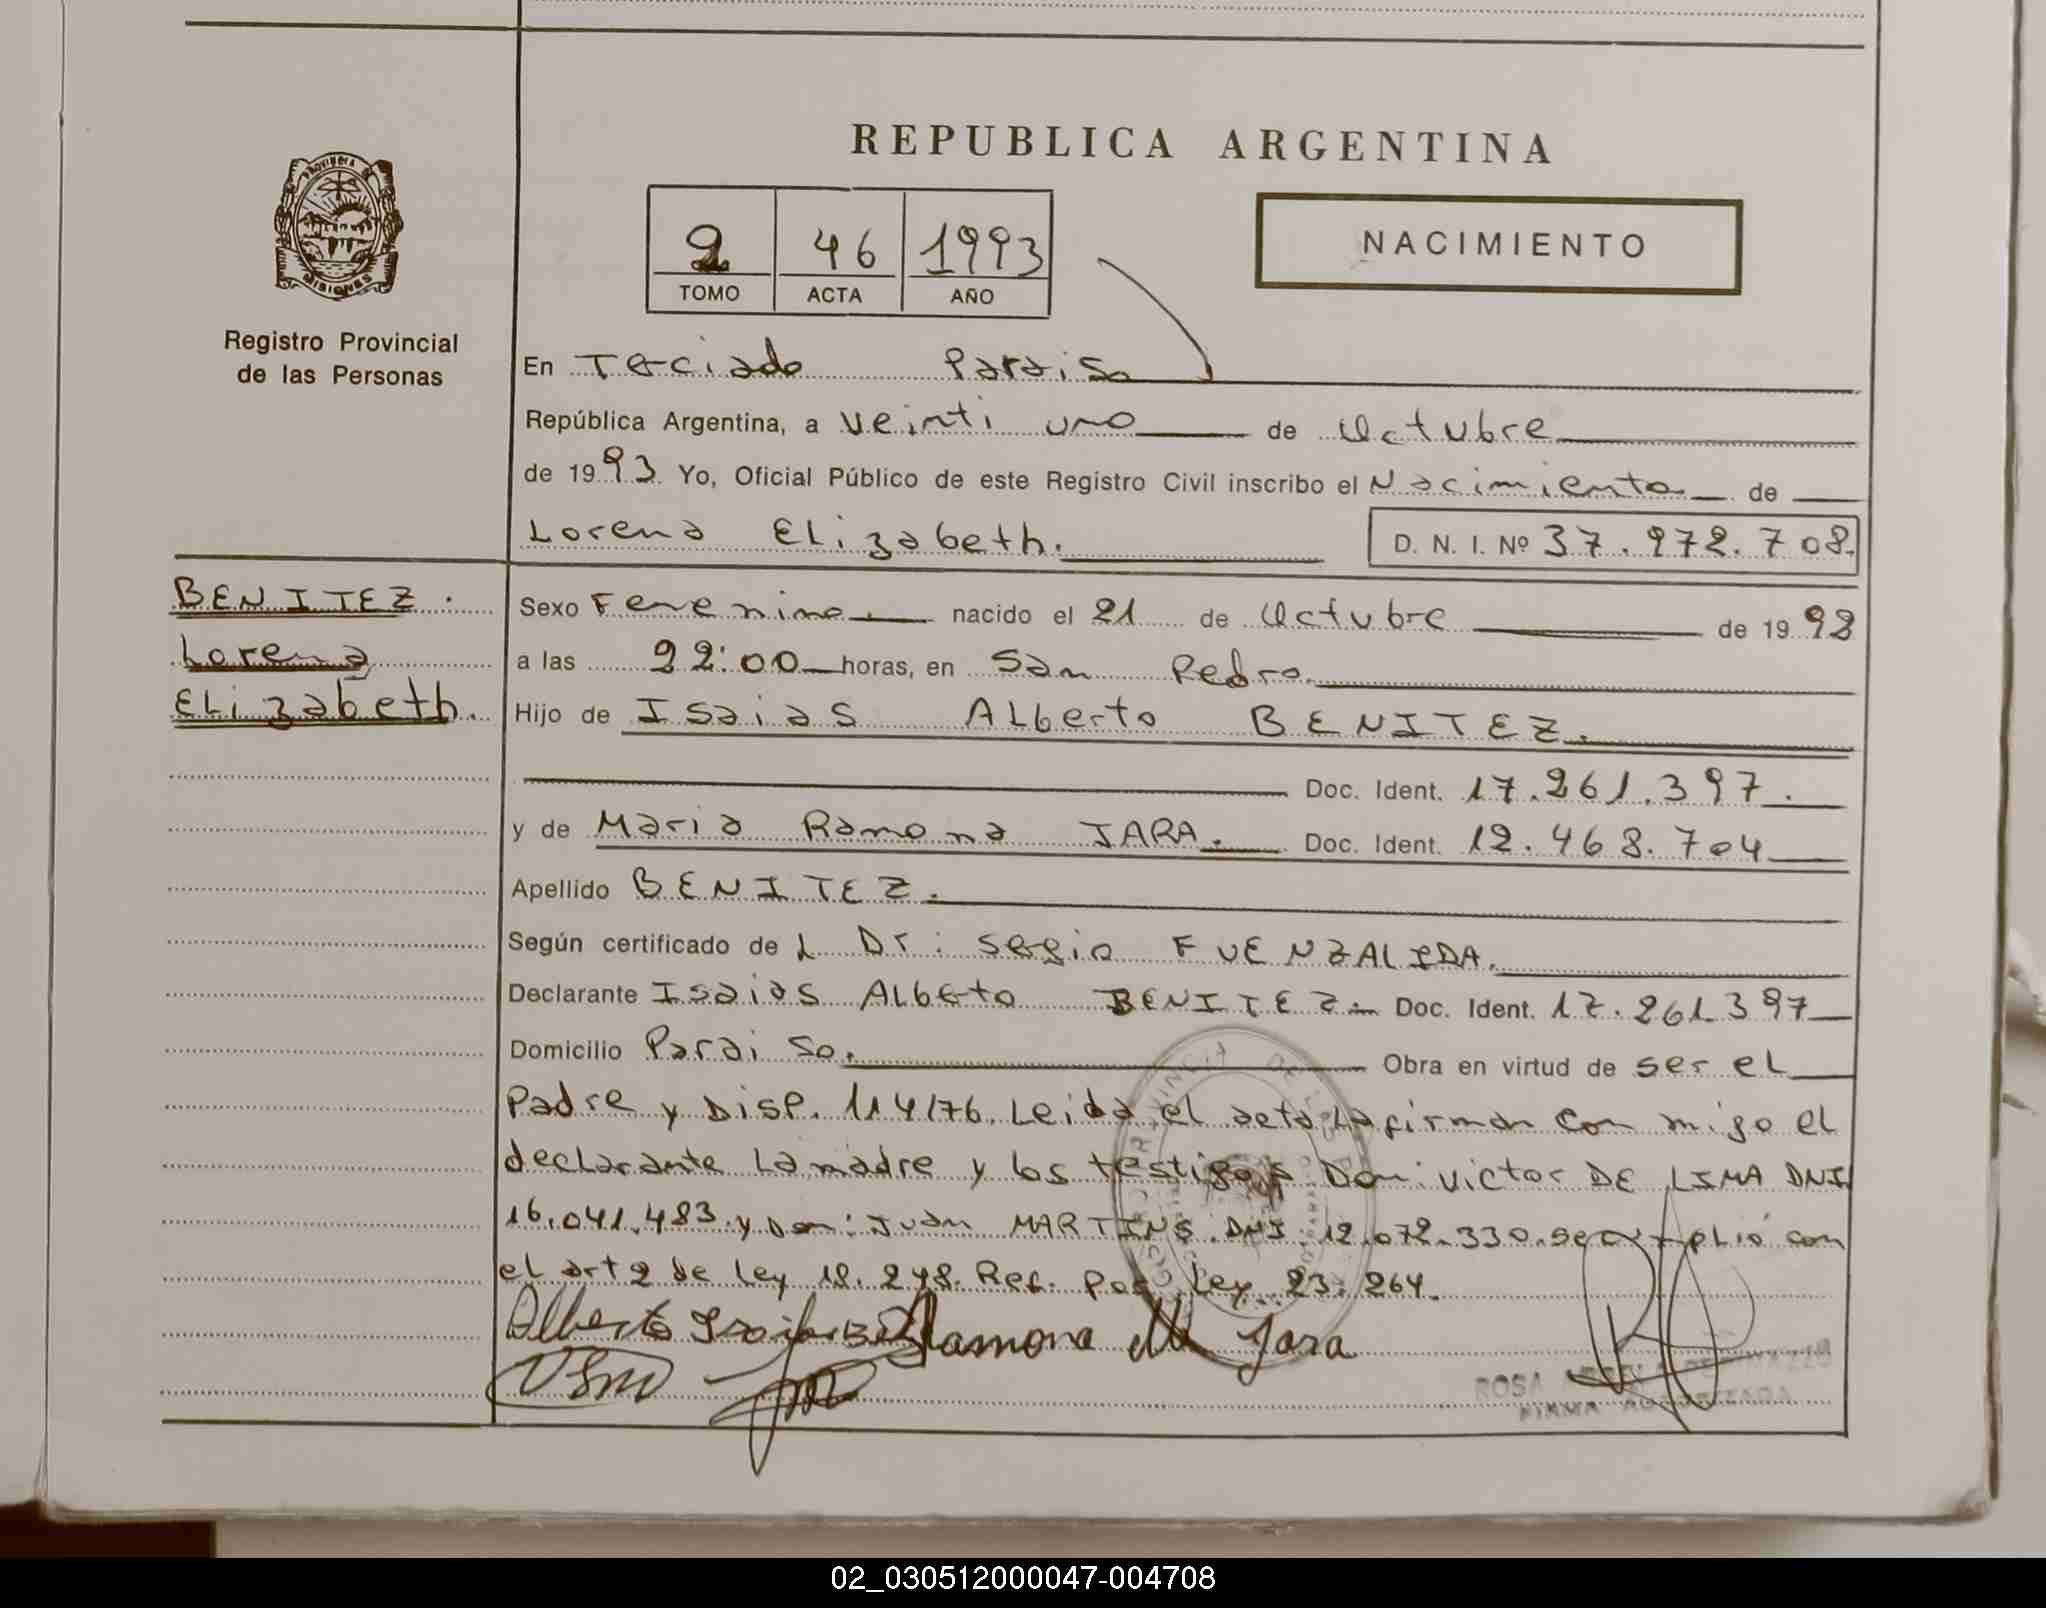 REPUBLICA ARGENTINA
PROVINCIA
MISIONES
Registro Provincial
de las Personas
2 46 1993
TOMO ACTA AÑO
NACIMIENTO
En Terciado Paraiso
República Argentina, a veinti uno de Octubre
de 1993 Yo, Oficial Público de este Registro Civil inscribo el Nacimiento de
Lorena Elizabeth. D. N. I. Nº 37.972.708.
BENITEZ.
Lorena
Elizabeth.
Sexo Femenino nacido el 21 de Octubre de 1992
a las 22:00 horas, en San Pedro.
Hijo de Isaias Alberto BENITEZ.
Doc. Ident. 17.261.397.
y de Maria Ramona JARA. Doc. Ident. 12.468.704
Apellido BENITEZ.
Según certificado de L Dr: Sergio FUENZALIDA.
Declarante Isaias Alberto BENITEZ. Doc. Ident. 17.261.397
Domicilio Paraiso. Obra en virtud de ser el
Padre y Disp. 114/76. Leida el acta la firman con migo el
declarante La madre y los testigos Don: victor DE LIMA DNI
16.041.483. y Don: Juan MARTINS. DNI. 12.072.330. se cumplió con
el art 2 de Ley 18.248. Ref. por Ley 23.264.
Ramona M Jara
ROSA
FIRMA AUTORIZADA
02_030512000047-004708